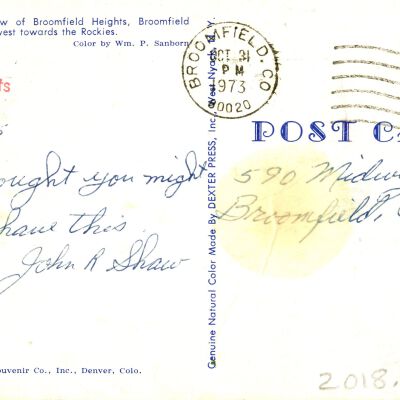 w of Broomfield Heights, Broomfield
west towards the Rockies.
Color by Wm. P. Sanborn
ts
BROOMFIELD, CO
OCT 31
PM
1973
80020
POST CA
ought you might
have this
John R Shaw
590 Midw
Broomfield,
Genuine Natural Color Made By DEXTER PRESS, Inc., West Nyack, N. Y.
ouvenir Co., Inc., Denver, Colo.
2018.